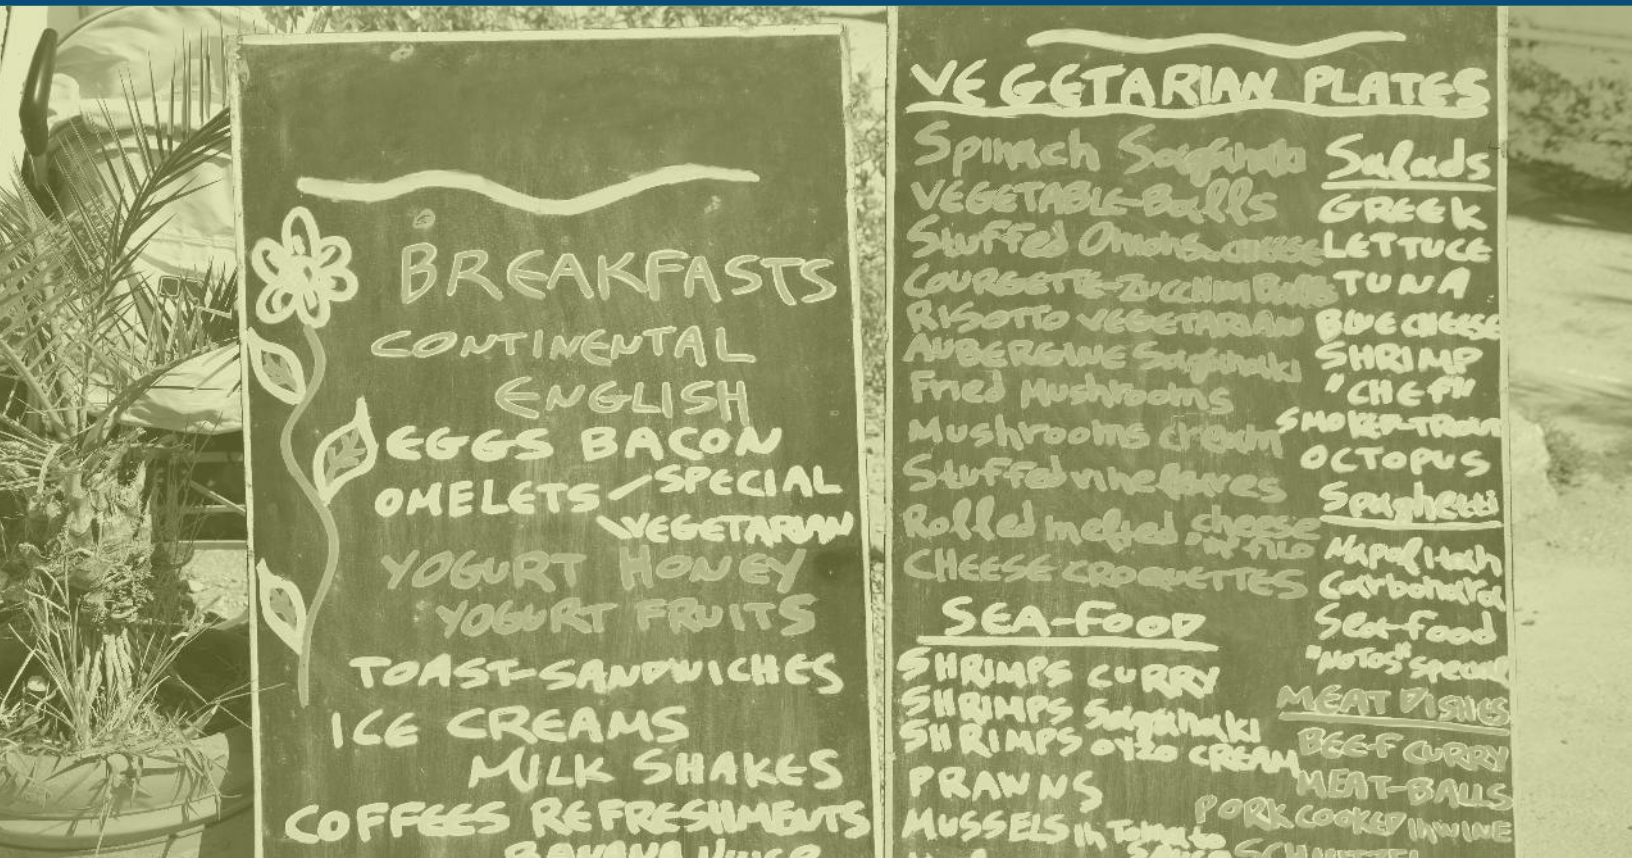 BREAKFASTS
CONTINENTAL
ENGLISH
EGGS BACON
OMELETS SPECIAL
VEGETARIAN
YOGURT HONEY
YOGURT FRUITS
TOAST-SANDWICHES
ICE CREAMS
MILK SHAKES
COFFEES REFRESHMENTS
BANANA JUICE
VEGETARIAN PLATES
Spinach Saganaki
VEGETABLE-Balls
Stuffed Onions CHEESE
COURGETTE-ZUCCHINI Balls
RISOTTO VEGETARIAN
AUBERGINE Saganaki
Fried Mushrooms
Mushrooms cream
Stuffed vineleaves
Rolled melted cheese
in FILO
CHEESE CROQUETTES
SEA-FOOD
SHRIMPS CURRY
SHRIMPS Saganaki
SHRIMPS OYZO CREAM
PRAWNS
MUSSELS in Tomato
Sauce
Salads
GREEK
LETTUCE
TUNA
BLUE CHEESE
SHRIMP
"CHEF"
SMOKED-TROUT
OCTOPUS
Spaghetti
Napolitah
Carbonara
Sea-food
"NOTOS" special
MEAT DISHES
BEEF CURRY
MEAT-BALLS
PORK COOKED IN WINE
SCHNITZEL